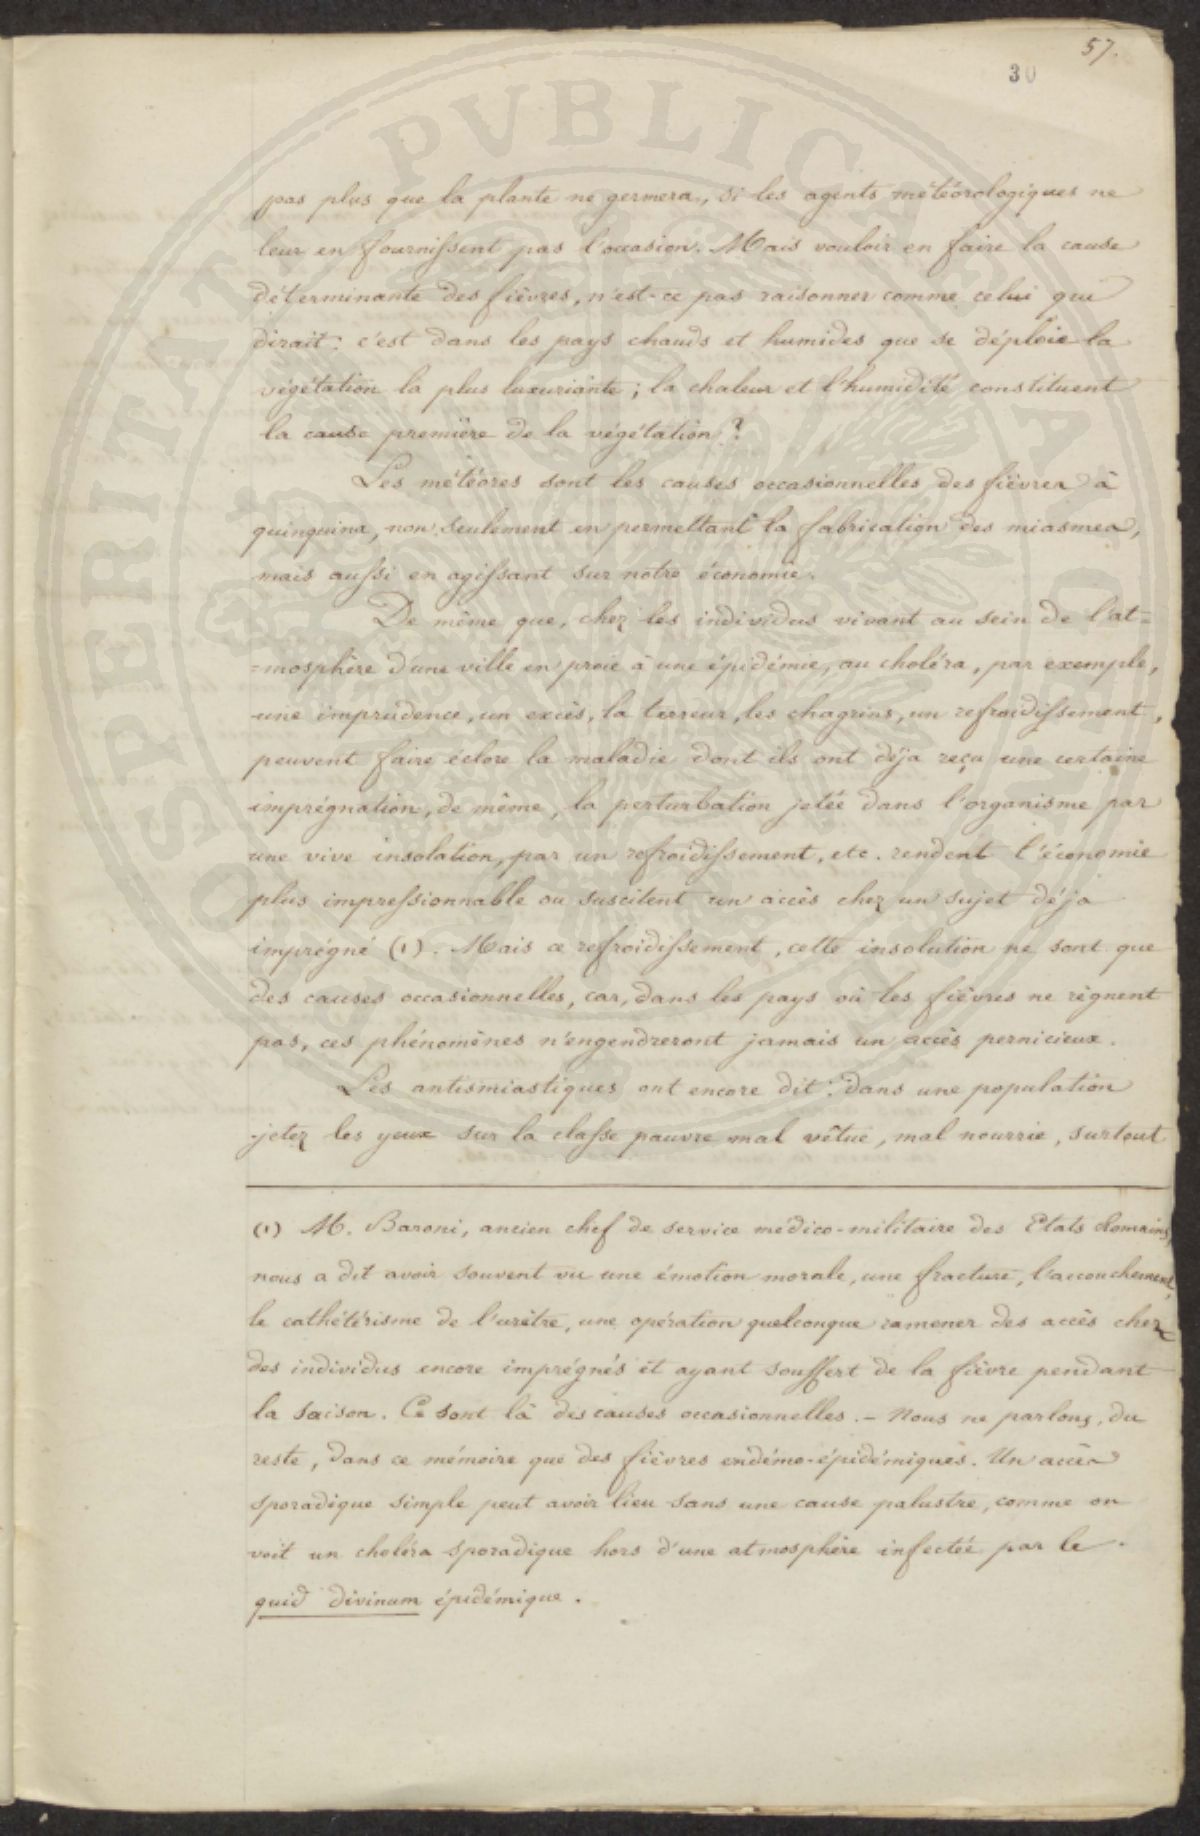 57.
30
pas plus que la plante ne germera, si les agents météorologiques ne
leur en fournissent pas l'occasion. Mais vouloir en faire la cause
déterminante des fièvres, n'est-ce pas raisonner comme celui qui
dirait: c'est dans les pays chauds et humides que se déploie la
végétation la plus luxuriante; la chaleur et l'humidité constituent
la cause première de la végétation?
Les météores sont les causes occasionnelles des fièvres à
quinquina, non seulement en permettant la fabrication des miasmes,
mais aussi en agissant sur notre économie.
De même que, chez les individus vivant au sein de l'at=
=mosphère d'une ville en proie à une épidémie, au choléra, par exemple,
une imprudence, un excès, la terreur, les chagrins, un refroidissement,
peuvent faire éclore la maladie dont ils ont déja reçu une certaine
imprégnation, de même, la perturbation jetée dans l'organisme par
une vive insolation, par un refroidissement, etc. rendent l'économie
plus impressionnable ou suscitent un accès chez un sujet déja
imprégné (1). Mais ce refroidissement, cette insolution ne sont que
des causes occasionnelles, car, dans les pays où les fièvres ne règnent
pas, ces phénomènes n'engendreront jamais un accès pernicieux.
Les antismiastiques ont encore dit: dans une population
jetez les yeux sur la classe pauvre mal vêtue, mal nourrie, surtout
(1) M. Baroni, ancien chef de service médico-militaire des Etats Romains,
nous a dit avoir souvent vu une émotion morale, une fracture, l'accouchement,
le cathétérisme de l'urètre, une opération quelconque ramener des accès chez
des individus encore imprégnés et ayant souffert de la fièvre pendant
la saison. Ce sont là des causes occasionnelles. - Nous ne parlons, du
reste, dans ce mémoire que des fièvres endémo-épidémiques. Un accès
sporadique simple peut avoir lieu sans une cause palustre, comme on
voit un choléra sporadique hors d'une atmosphère infectée par le
quid divinum épidémique.
PROSPERITATI PUBLICAE